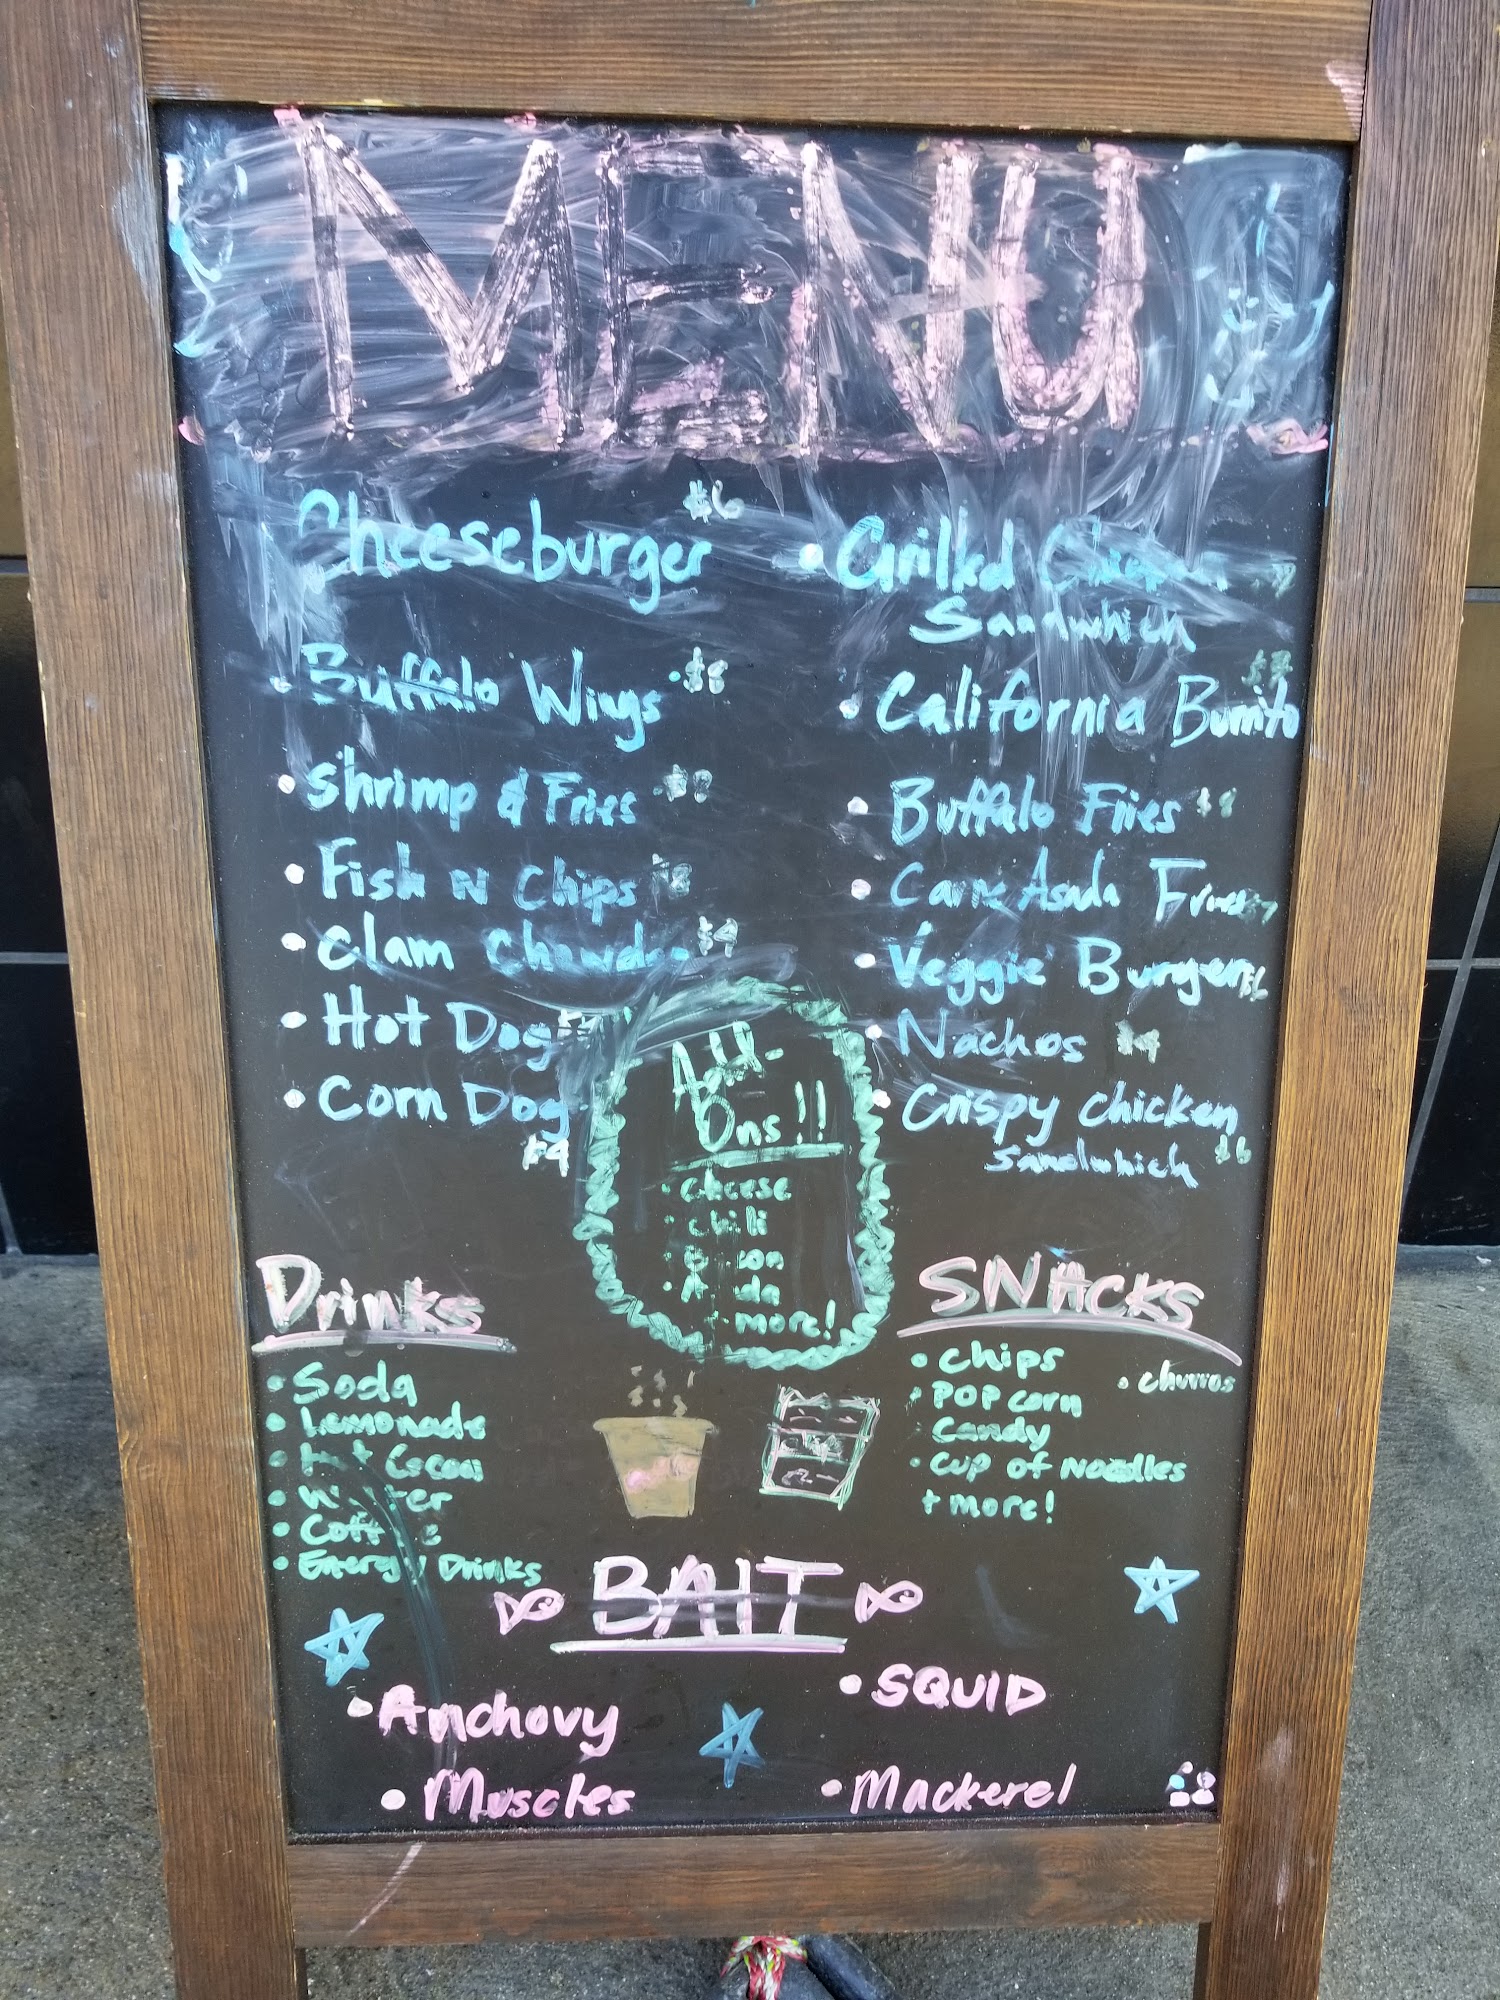 MENU
Cheeseburger $6
• Buffalo Wings • $8
• Shrimp & Fries
• Fish N Chips
• Clam Chowder $4
• Hot Dog
• Corn Dog
$4
• Grilled Chicken
Sandwhich
• California Burrito
• Buffalo Fries
• Carne Asada Fries
• Veggie Burger $6
• Nachos $4
• Crispy chicken
sandwhich $6
Add-
Ons!!
• cheese
• chili
• Bacon
+ more!
Drinks
• Soda
• Lemonade
• hot Cocoa
• Water
• Coffee
• Energy Drinks
SNACKS
• Chips
• Churros
• POP corn
• Candy
• Cup of Noodles
+ more!
BAIT
• Anchovy
• Muscles
• SQUID
• Mackerel